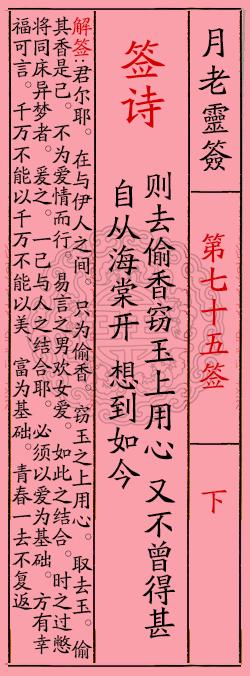 月老靈簽
第七十五签
下
签诗
则去偷香窃玉上用心 又不曾得甚
自从海棠开 想到如今
解签:君尔耶。在与伊人之间。只为偷香。窃玉之上用心。取去玉。偷
其香是已。不为爱情而行。易言之男欢女爱。如此之结合。时之过憋
将同床异梦者。爰之。一已与人之结合耶。必须以爱为基础。方有幸
福可言。千万不能以千万不能以美、富为基础。青春一去不复返